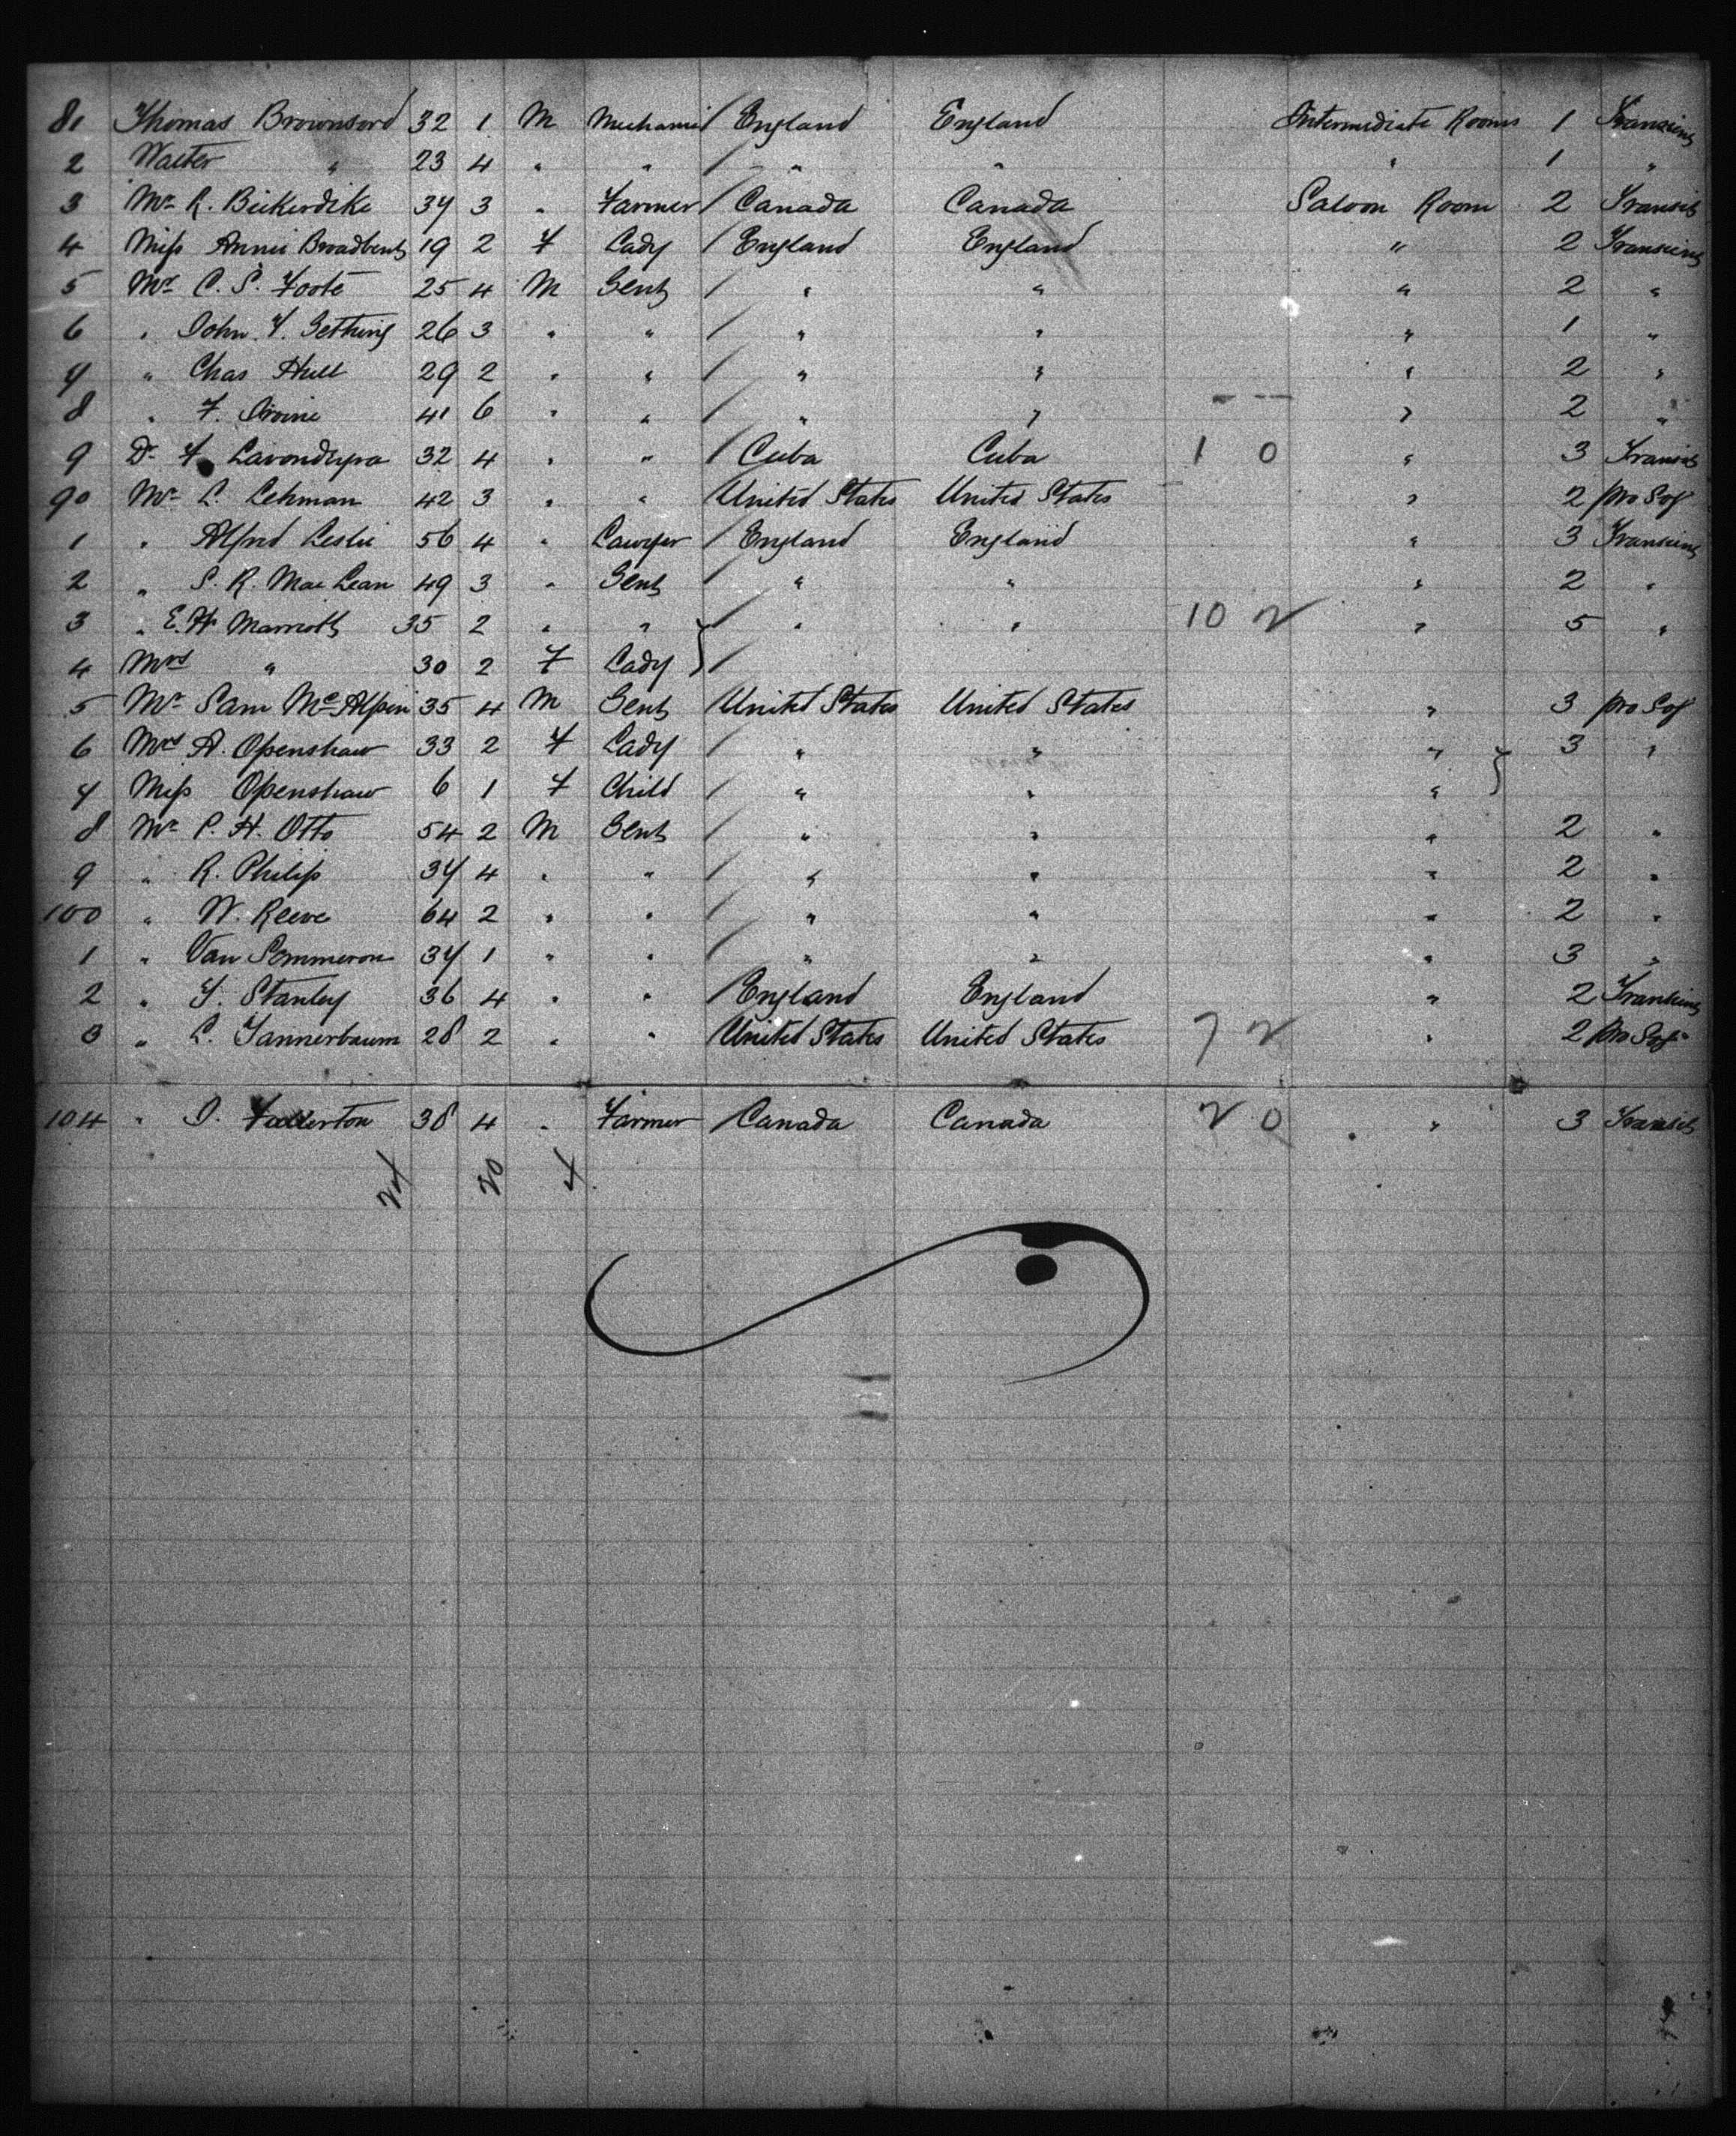 81 Thomas Brownsord 32 1 M Mechanic / England England Intermediate Rooms 1 Transient
2 Walter " 23 4 " " / " " " 1 "
3 Mr R. Bickerdike 37 3 " Farmer / Canada Canada Saloon Room 2 Transit
4 Miss Annie Broadbent 19 2 F Lady / England England " 2 Transient
5 Mr C. S. Foote 25 4 M Gent / " " " 2 "
6 " John F. Gething 26 3 " " / " " " 1 "
7 " Chas Hull 29 2 " " / " " " 2 "
8 " F. Irvine 41 6 " " / " " " 2 "
9 Dr F. 32 4 " " / Cuba Cuba 1 0 " 3 Transit
90 Mr L. Lehman 42 3 " " United States United States " 2 pro Soj
1 " Alfred Leslie 56 4 " Lawyer / England England " 3 Transient
2 " S. R. MacLean 49 3 " Gent / " " " 2 "
3 " E. H. Marriott 35 2 " " / " " 10 2 " 5 "
4 Mrs " 30 2 F Lady /
5 Mr Sam McAlpin 35 4 M Gent United States United States " 3 pro Soj
6 Mrs A. Openshaw 33 2 F Lady / " " " 3 "
7 Miss Openshaw 6 1 F Child / " " "
8 Mr P. H. Otto 54 2 M Gent / " " " 2 "
9 " R. Philip 37 4 " " / " " " 2 "
100 " W. Reeve 64 2 " " / " " " 2 "
1 " Van Sommeron 37 1 " " / " " " 3 "
2 " T. Stanley 36 4 " " / England England " 2 Transient
3 " L. Tannerbaum 28 2 " " United States United States 7 2 " 2 pro Soj
104 " D. Fullerton 38 4 " Farmer / Canada Canada 2 0 " 3 Transit
24 20 4